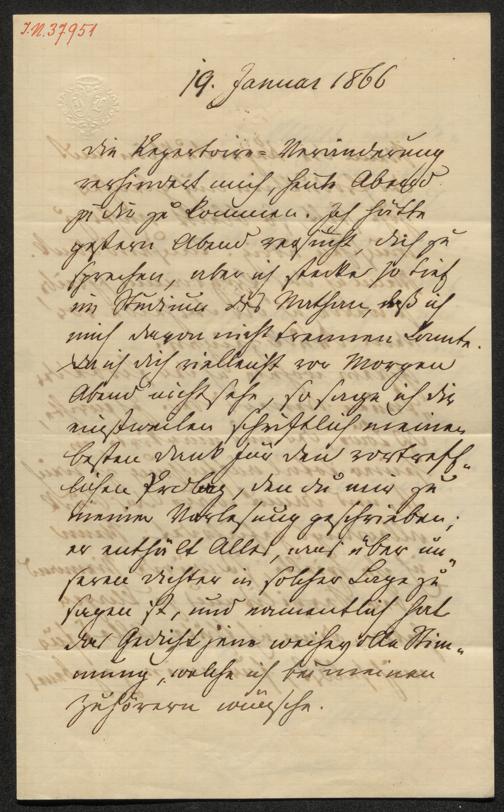 J.N. 37951
19. Januar 1866
die Repertoire=Veränderung
verhindert mich, heute Abend
zu dir zu kommen. Ich hätte
gestern Abend versucht, dich zu
sprechen, aber ich stecke so tief
im Studium des Nathan, daß ich
mich davon nicht trennen konnte.
Da ich dich vielleicht vor Morgen
Abend nicht sehe, so sage ich dir
einstweilen schriftlich meinen
besten Dank für den vortreff=
lichen Prolog, den du mir zu
meiner Vorlesung geschrieben;
er enthält Alles, was über un=
seren Dichter in solcher Lage zu
sagen ist, und namentlich hat
das Gedicht jene weihevolle Stim=
mung, welche ich bei meinen
Zuhörern wünsche.